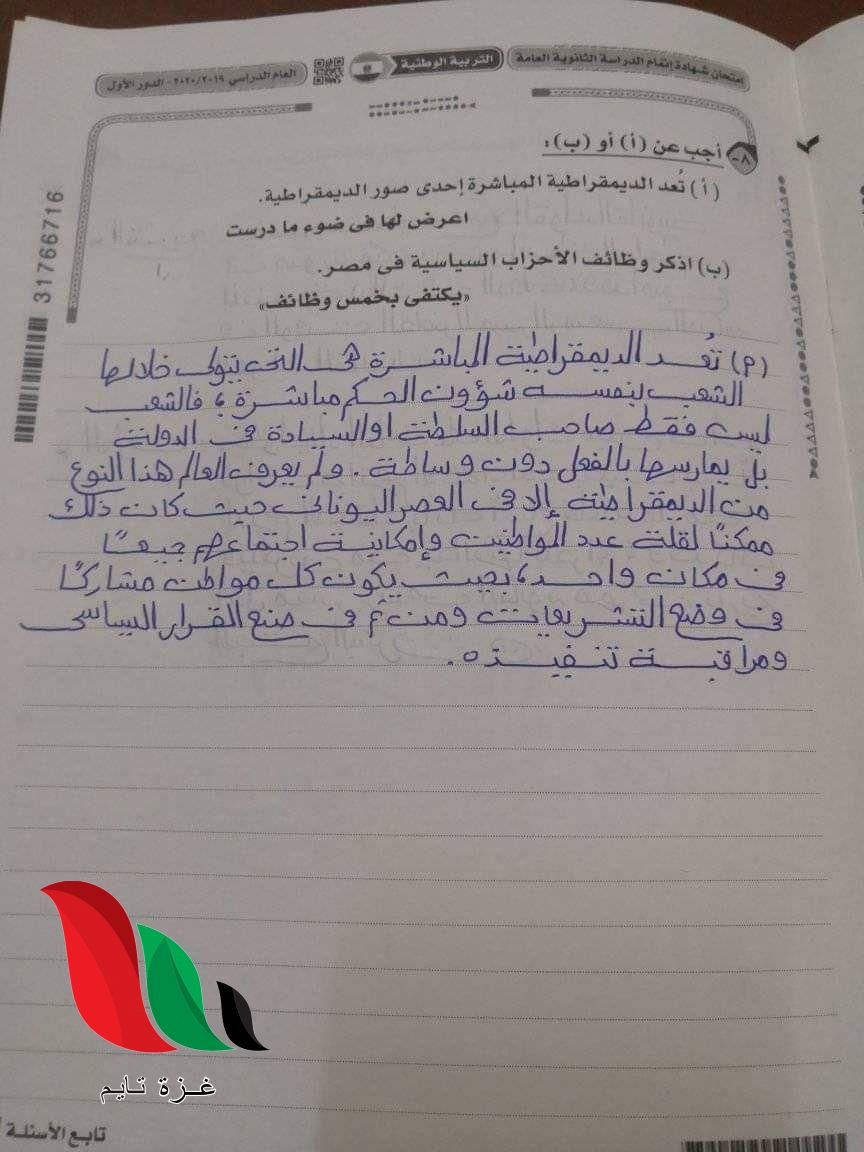 امتحان شهادة إتمام الدراسة الثانوية العامة
التربية الوطنية
العام الدراسى ٢٠١٩/٢٠٢٠ - الدور الأول
٨- أجب عن (أ) أو (ب):
(أ) تُعد الديمقراطية المباشرة إحدى صور الديمقراطية.
اعرض لها فى ضوء ما درست
(ب) اذكر وظائف الأحزاب السياسية فى مصر.
«يكتفى بخمس وظائف»
31766716
(أ) تُعد الديمقراطية المباشرة هى التى يتولى خلالها
الشعب بنفسه شؤون الحكم مباشرة، فالشعب
ليس فقط صاحب السلطة أو السيادة فى الدولة
بل يمارسها بالفعل دون وساطة. ولم يعرف العالم هذا النوع
من الديمقراطية إلا فى العصر اليونانى حيث كان ذلك
ممكنًا لقلة عدد المواطنين وإمكانية اجتماعهم جميعًا
فى مكان واحد، بحيث يكون كل مواطن مشاركًا
فى وضع التشريعات ومن ثم فى صنع القرار السياسى
ومراقبة تنفيذه.
غزة تايم
تابع الأسئلة